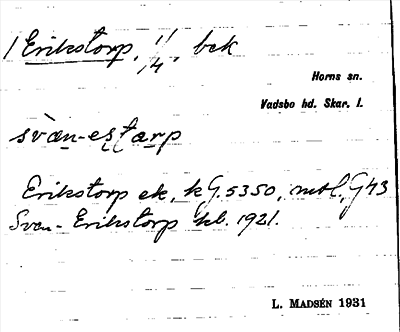 1 Erikstorp, 1/4, bek
Horns sn.
Vadsbo hd. Skar. l.
svæn-estarp
Erikstorp ek, kG. 5350, mtl, G 43
Sven-Erikstorp kb. 1921.
L. MADSÉN 1931